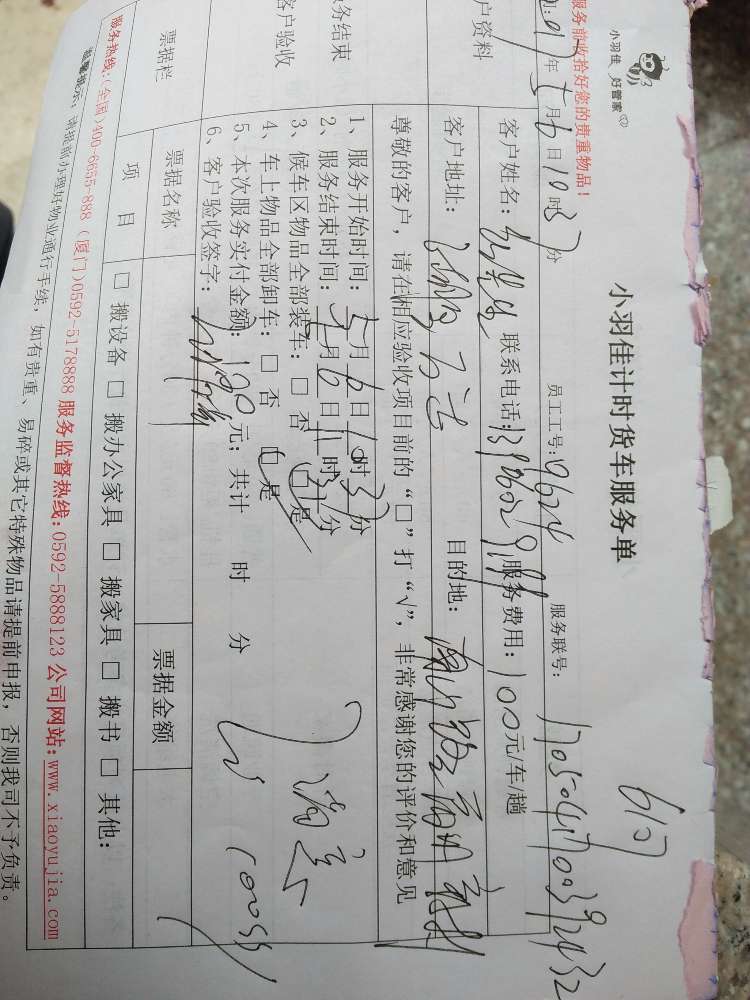 服务前收拾好您的贵重物品！
小羽佳 好管家
小羽佳计时货车服务单
年5月6日10时37分 员工工号：9624 服务联号：
户资料 客户姓名： 联系电话： 服务费用：100元/车/趟
客户地址： 目的地：
尊敬的客户，请在相应验收项目前的“□”打“√”，非常感谢您的评价和意见
务结束
客户验收
1、服务开始时间：5月6日10时37分
2、服务结束时间：5月6日11时 分
3、候车区物品全部装车：□否 □是
4、车上物品全部卸车：□否 □是
5、本次服务实付金额：100元；共计 时 分
6、客户验收签字：
满意
票据栏 票据名称 票据金额
项 目 □搬设备 □搬办公家具 □搬家具 □搬书 □其他：
服务热线：(全国)400-6655-888 (厦门)0592-5178888 服务监督热线：0592-5888123 公司网站：www.xiaoyujia.com
请提前办理好物业通行手续，如有贵重、易碎或其它特殊物品请提前申报，否则我司不予负责。